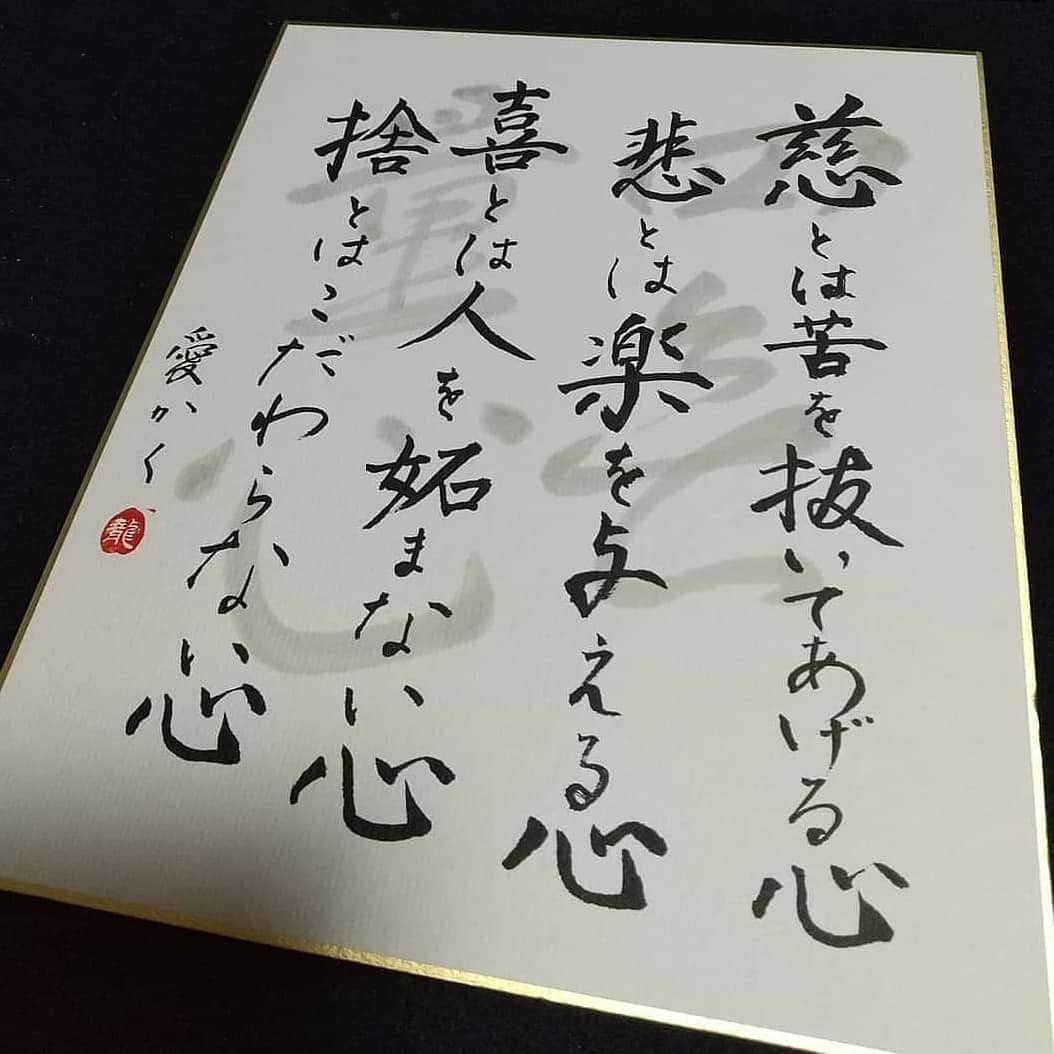 慈とは苦を抜いてあげる心
悲とは楽を与える心
喜とは人を妬まない心
捨とはこだわらない心
愛かく
龍
四無量心